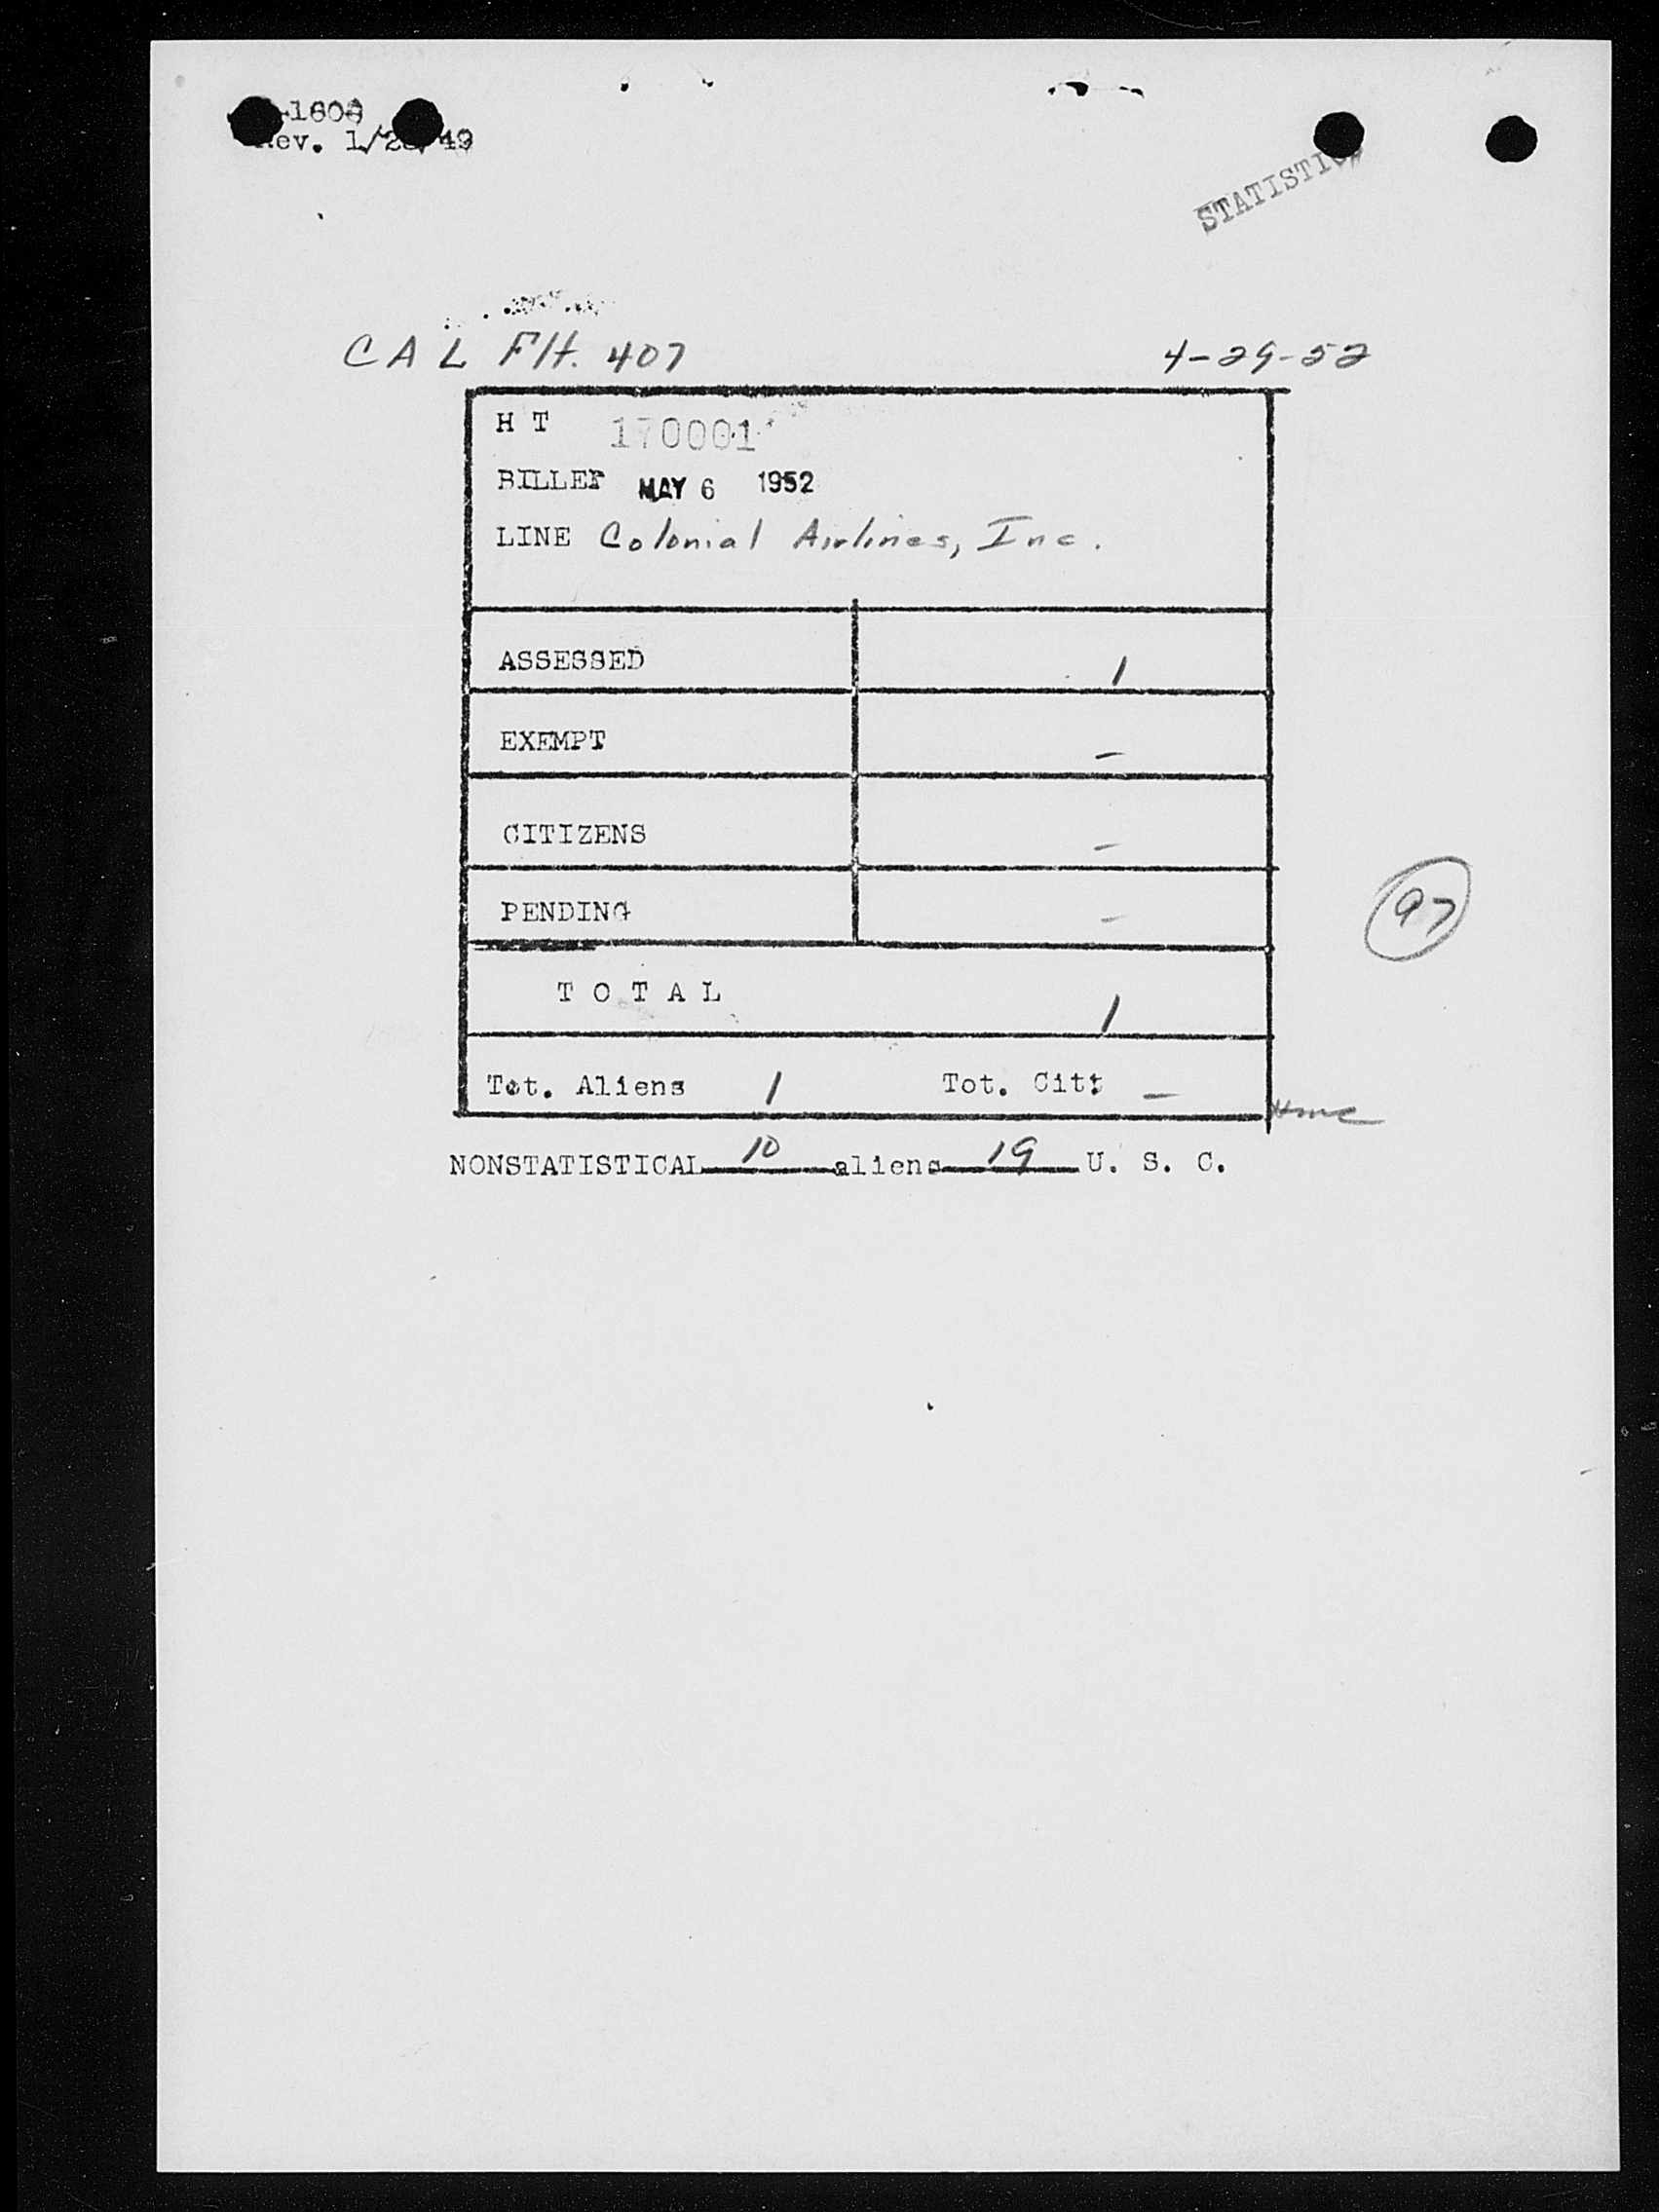 -1608
Rev. 1/28/49
STATISTICS
CAL Flt. 407 4-29-52
H T 170001
BILLET MAY 6 1952
LINE Colonial Airlines, Inc.
ASSESSED 1
EXEMPT -
CITIZENS -
PENDING -
97
T O T A L 1
Tot. Aliens 1 Tot. Cit: -
NONSTATISTICAL 10 aliens 19 U. S. C.